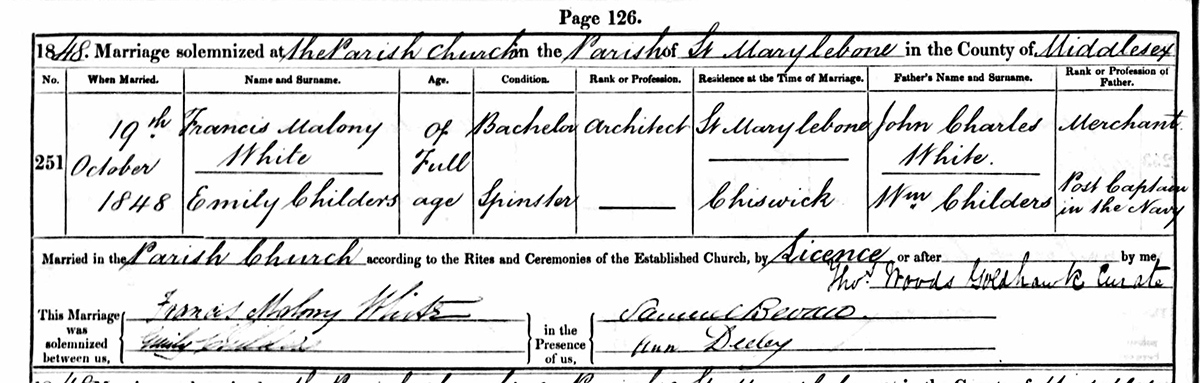 Page 126.
1848. Marriage solemnized at the Parish Church in the Parish of St Marylebone in the County of Middlesex
No. When Married. Name and Surname. Age. Condition. Rank or Profession. Residence at the Time of Marriage. Father's Name and Surname. Rank or Profession of Father.
251 19th October 1848
Francis Malony White
Emily Childers
of Full age
Bachelor
Spinster
Architect
St Marylebone
Chiswick
John Charles White.
Wm Childers
Merchant.
Post Captain in the Navy
Married in the Parish Church according to the Rites and Ceremonies of the Established Church, by Licence or after by me,
Thos. Woods Goldhawk Curate
This Marriage was solemnized between us,
Francis Malony White
Emily Childers
in the Presence of us,
Samuel Bevan.
Ann Deeley